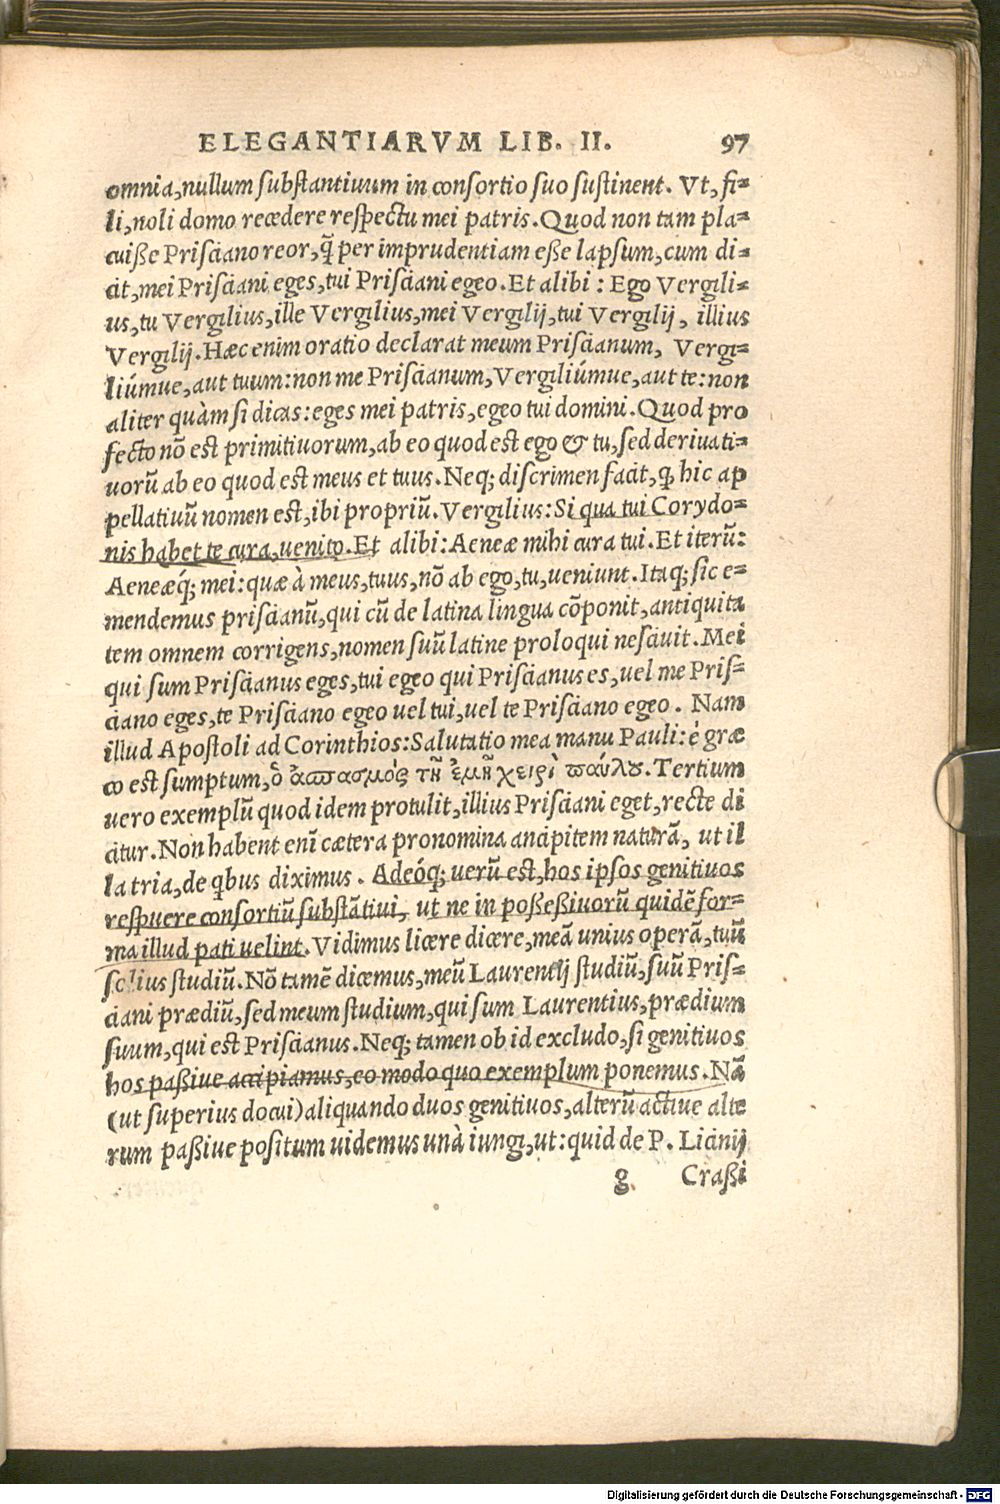 ELEGANTIARVM LIB. II. 97
omnia, nullum substantiuum in consortio suo sustinent. Vt, fi-
li, noli domo recedere respectu mei patris. Quod non tam pla-
cuisse Prisciano reor, q̃ per imprudentiam esse lapsum, cum di-
cit, mei Prisciani eges, tui Prisciani egeo. Et alibi: Ego Vergili-
us, tu Vergilius, ille Vergilius, mei Vergilij, tui Vergilij, illius
Vergilij. Hæc enim oratio declarat meum Priscianum, Vergi-
liúmue, aut tuum: non me Priscianum, Vergiliúmue, aut te: non
aliter quàm si dicas: eges mei patris, egeo tui domini. Quod pro
fecto nõ est primitiuorum, ab eo quod est ego & tu, sed deriuati-
uorũ ab eo quod est meus et tuus. Neq; discrimen facit, ꝙ hic ap
pellatiuũ nomen est, ibi propriũ. Vergilius: Si qua tui Corydo-
nis habet te cura, uenito. Et alibi: Aeneæ mihi cura tui. Et iterũ:
Aeneæq́; mei: quæ à meus, tuus, nõ ab ego, tu, ueniunt. Itaq; sic e-
mendemus priscianũ, qui cũ de latina lingua cõponit, antiquita
tem omnem corrigens, nomen suũ latine proloqui nesciuit. Mei
qui sum Priscianus eges, tui egeo qui Priscianus es, uel me Pris-
ciano eges, te Prisciano egeo uel tui, uel te Prisciano egeo. Nam
illud Apostoli ad Corinthios: Salutatio mea manu Pauli: è græ
co est sumptum, ὁ ἀσπασμός τῇ ἐμῇ χειρὶ παύλου. Tertium
uero exemplũ quod idem protulit, illius Prisciani eget, recte di
citur. Non habent enĩ cætera pronomina ancipitem naturã, ut il
la tria, de qbus diximus. Adeóq; uerũ est, hos ipsos genitiuos
respuere consortiũ substãtiui, ut ne in possessiuorũ quidẽ for-
ma illud pati uelint. Vidimus licere dicere, meã unius operã, tuũ
solius studiũ. Nõ tamẽ dicemus, meũ Laurentij studiũ, suũ Pris-
ciani prædiũ, sed meum studium, qui sum Laurentius, prædium
suum, qui est Priscianus. Neq; tamen ob id excludo, si genitiuos
hos passiue accipiamus, eo modo quo exemplum ponemus. Nã
(ut superius docui) aliquando duos genitiuos, alterũ actiue alte
rum passiue positum uidemus unà iungi, ut: quid de P. Licinij
g Crassi
Digitalisierung gefördert durch die Deutsche Forschungsgemeinschaft - DFG